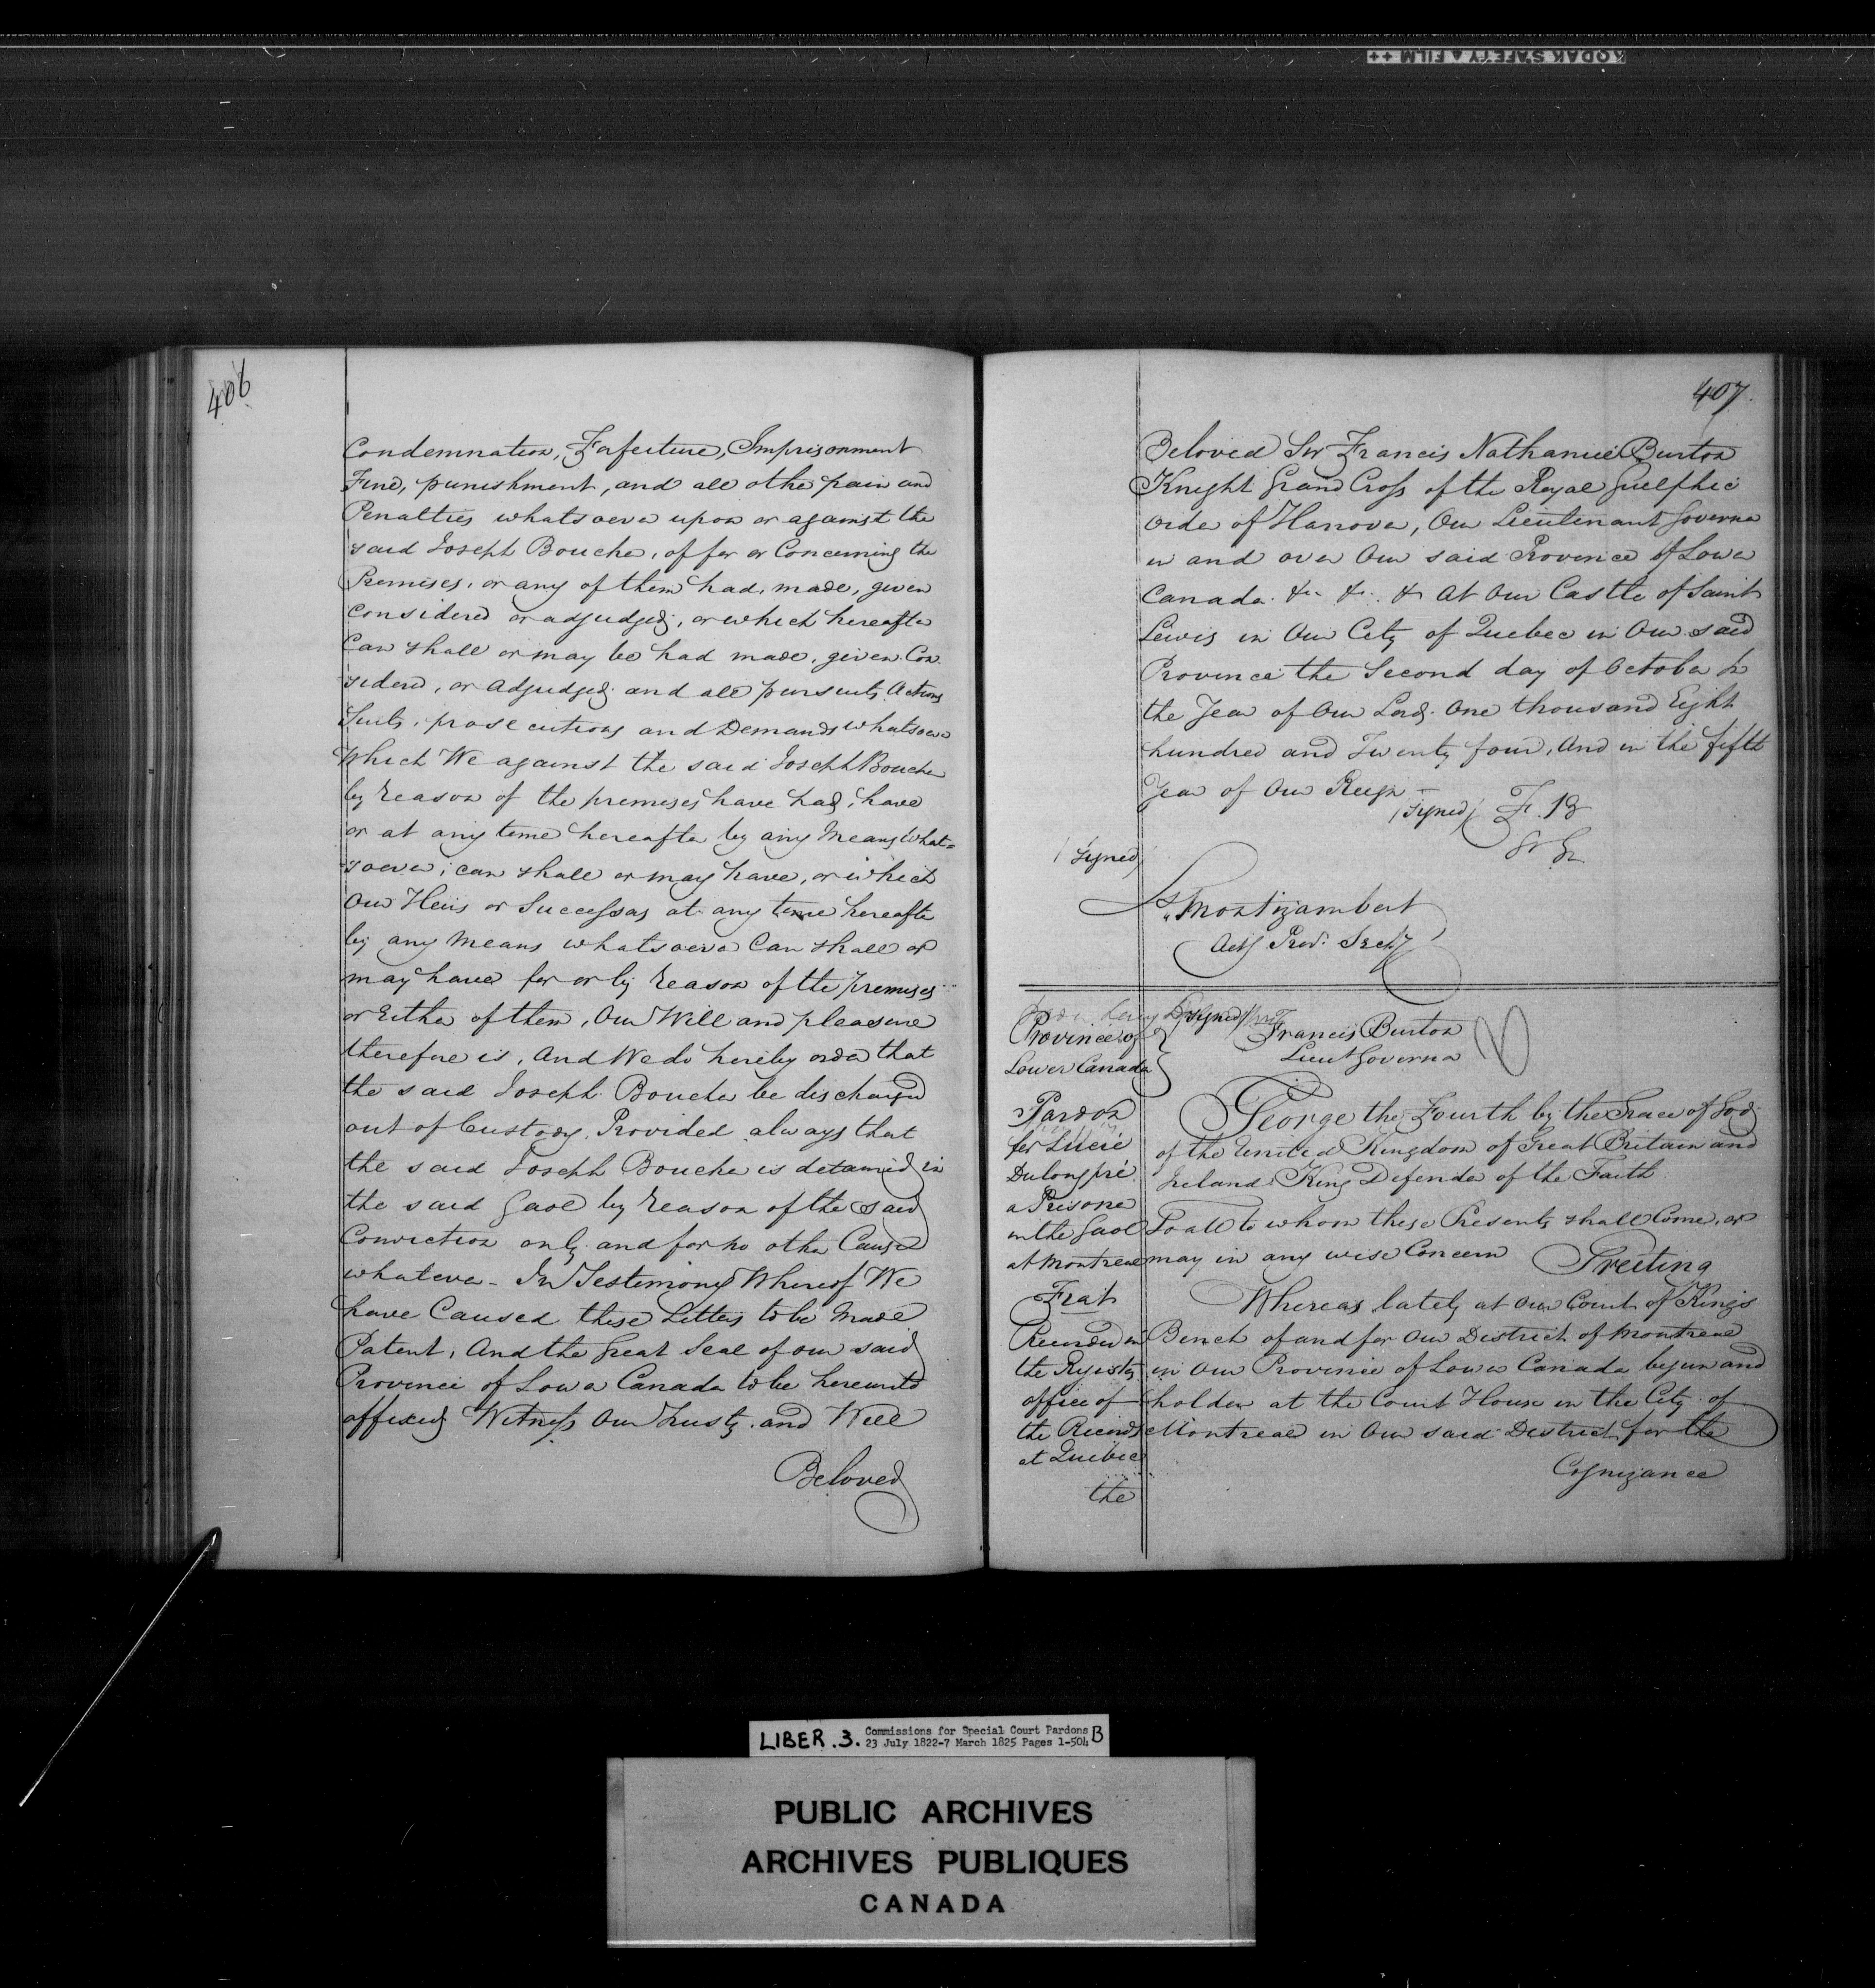 KODAK SAFETY ▲ FILM ++
406
Condemnation, Forfeiture, Imprisonment
Fine, punishment, and all other pain and
Penalties whatsoever upon or against the
said Joseph Boucher, of for or Concerning the
Premises, or any of them had, made, given
considered or adjudged, or which hereafter
Can shall or may be had made, given Con
sidered, or Adjudged and all pursuits Actions
Suits, prosecutions and Demands whatsoever
Which We against the said Joseph Boucher
by reason of the premises have had, have
or at any time hereafter by any Means What=
soever; can shall or may have, or which
Our Heirs or Successors at any time hereafter
by any Means whatsoever Can shall or
may have for or by reason of the premises
or Either of them, Our Will and pleasure
therefore is, And We do hereby order that
the said Joseph Boucher be discharged
out of Custody, Provided always that
the said Joseph Boucher is detained in
the said Gaol by reason of the said
Conviction only and for no other Cause
whatever - In Testimony Whereof We
have Caused these Letters to be Made
Patent, And the Great Seal of our said
Province of Lower Canada to be hereunto
affixed Witness Our Trusty and Well
Beloved
407.
Beloved Sir Francis Nathaniel Burton
Knight Grand Cross of the Royal Guelphic
Order of Hanover, Our Lieutenant Governor
in and over Our said Province of Lower
Canada &c &c &c At Our Castle of Saint
Lewis in Our City of Quebec in Our said
Province the Second day of October in
the Year of Our Lord One thousand Eight
hundred and Twenty four, And in the fifth
Year of Our Reign -
(signed) F. B
Lt Gr
(signed)
Ls Montizambert
Actg Prov: Secty
Province of
Lower Canada
(signed)
Francis Burton
Lieut Governor
Pardon
for Lucie
Dulongpré
a Prisoner
in the Gaol
at Montreal
Fiat
Recorded in
the Registry
office of
the Records
at Quebec
the
George the Fourth by the Grace of God
of the United Kingdom of Great Britain and
Ireland King Defender of the Faith
To all to whom these Presents shall Come, or
may in any wise Concern Greeting
Whereas lately at our Court of Kings
Bench of and for our District of Montreal
in Our Province of Lower Canada begun and
holden at the Court House in the City of
Montreal in Our said District for the
Cognizance
LIBER . 3. Commissions for Special Court Pardons B
23 July 1822-7 March 1825 Pages 1-504
PUBLIC ARCHIVES
ARCHIVES PUBLIQUES
CANADA